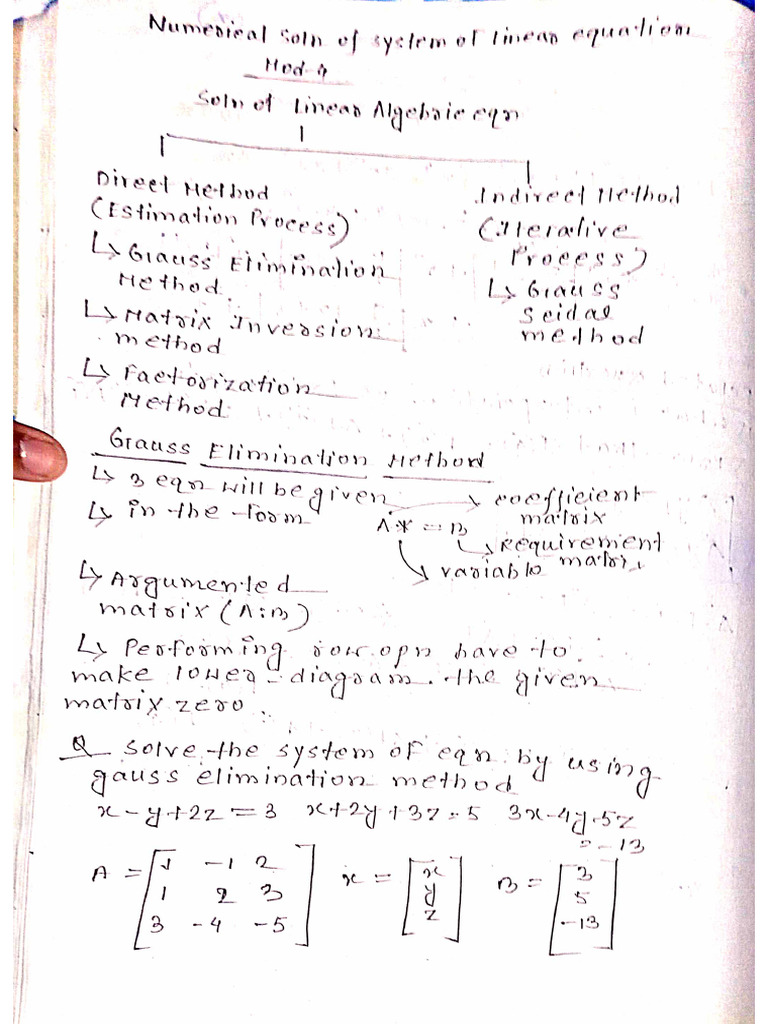 Numerical soln of system of linear equation
Mod-4
Soln of Linear Algebraic eqn
Direct Method
(Estimation Process)
↳ Gauss Elimination
Method
↳ Matrix Inversion
method
↳ Factorization
Method
Indirect Method
(Iterative
Process)
↳ Gauss
Seidal
method
Gauss Elimination Method
↳ 3 eqn will be given
↳ in the form AX = B
coefficient
matrix
requirement
matrix
variable
↳ Argumented
matrix (A:B)
↳ Performing row opn have to
make lower-diagram the given
matrix zero.
Q solve the system of eqn by using
gauss elimination method
x-y+2z=3 x+2y+3z=5 3x-4y-5z
=-13
A = [1 -1 2 x = [x B = [3
1 2 3 y 5
3 -4 -5] z] -13]